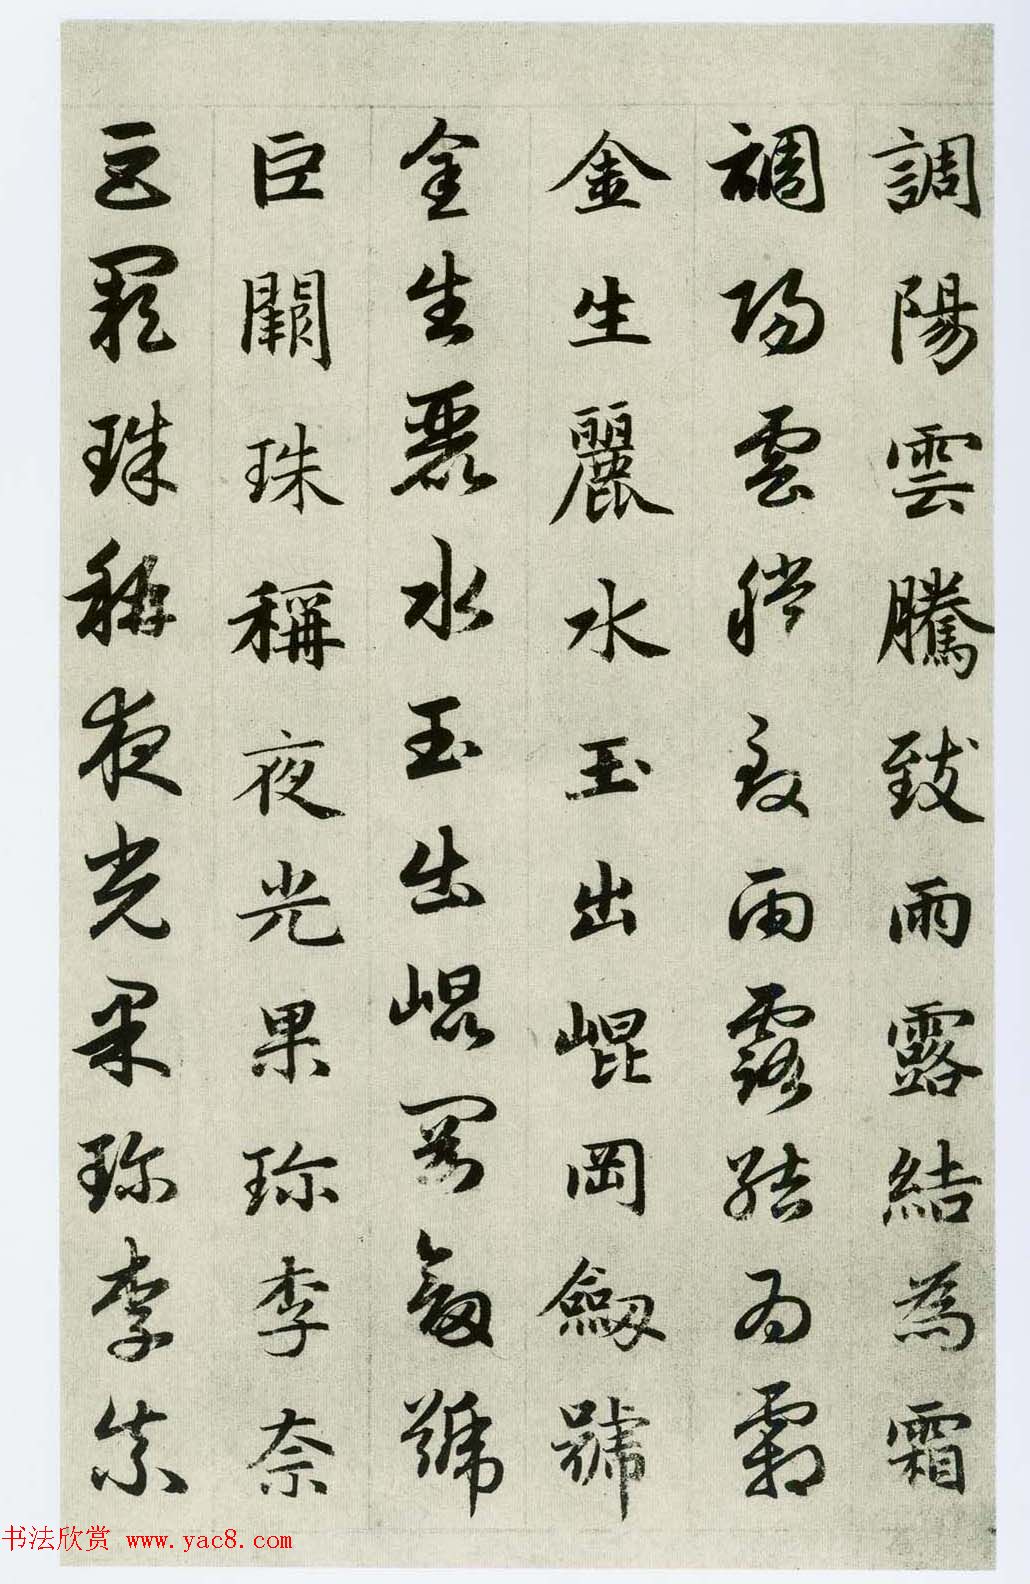 調陽雲騰致雨露結為霜
調陽雲騰致雨露結為霜
金生麗水玉出崐岡劔號
金生麗水玉出崐岡劔號
巨闕珠稱夜光果珎李奈
巨闕珠稱夜光果珎李柰
书法欣赏 www.yac8.com